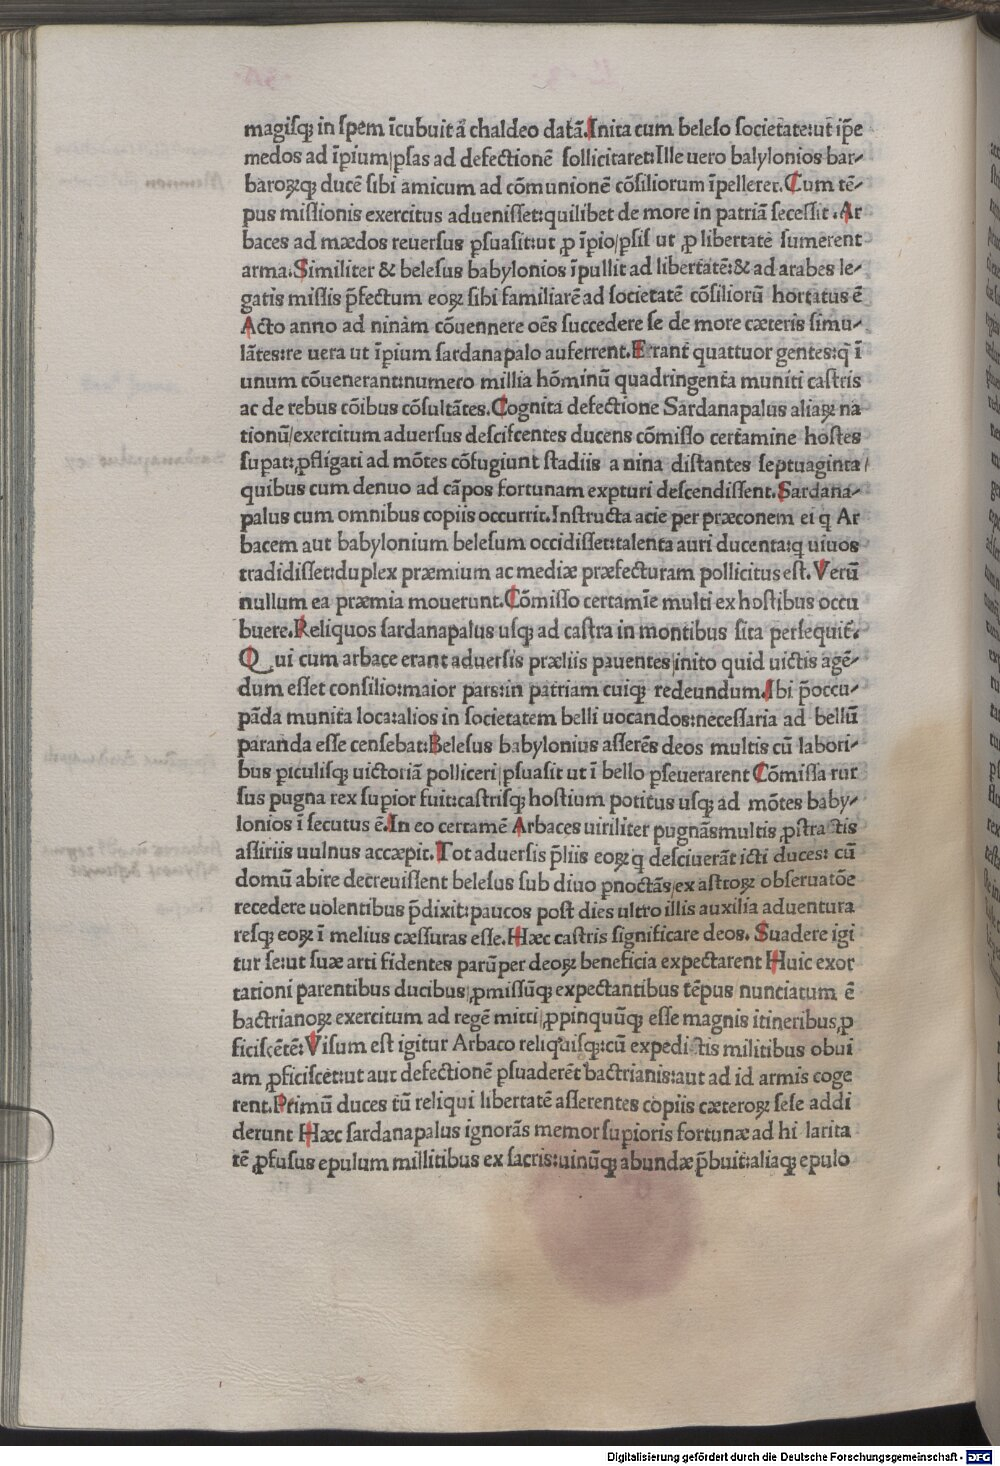 magisq; in spem īcubuit a chaldeo datā. Inita cum beleso societate: ut ip̄e
medos ad īpium/ p̱sas ad defectionē sollicitaret: Ille uero balylonios bar-
baroꝝq; ducē sibi amicum ad cōmunionē cōsiliorum īpelleret. Cum tē-
pus missionis exercitus aduenisset: quilibet de more in patriā secessit. Ar
baces ad mædos reuersus ꝑsuasit: ut ꝓ īpio/ ꝑsis ut ꝓ libertate sumerent
arma. Similiter & belesus babylonios īpullit ad libertatē: & ad arabes le-
gatis missis p̄fectum eoꝝ sibi familiarē ad societatē cōsiliorū hortatus ē
Acto anno ad ninam cōuennere oēs succedere se de more cæteris simu-
lātes: re uera ut īpium sardanapalo auferrent. Erant quattuor gentes: q̄ ī
unum cōuenerant: numero millia hominū quadringenta muniti castris
ac de rebus cōibus cōsultātes. Cognita defectione Sardanapalus aliaꝝ na
tionū/ exercitum aduersus desciscentes ducens cōmisso certamine hostes
suꝑat: ꝓfligati ad mōtes cōfugiunt stadiis a nina distantes septuaginta/
quibus cum denuo ad cāpos fortunam expturi descendissent. Sardana-
palus cum omnibus copiis occurrit. Instructa acie per præconem ei q̄ Ar
bacem aut babylonium belesum occidisset: talenta auri ducenta: q̄ uiuos
tradidisset: duplex præmium ac mediæ præfecturam pollicitus est. Verū
nullum ea præmia mouerunt. Cōmisso certamīe multi ex hostibus occu
buere. Reliquos sardanapalus usq; ad castra in montibus sita persequit̄.
Qui cum arbace erant aduersis præliis pauentes/ inito quid uictis agē-
dum esset consilio: maior pars: in patriam cuiq; redeundum. Ibi p̄occu-
pāda munita loca: alios in societatem belli uocandos: necessaria ad bellū
paranda esse censebat: Belesus babylonius asserēs deos multis cū labori-
bus ꝑiculisq; uictoriā polliceri/ ꝑsuasit ut ī bello ꝑseuerarent Cōmissa rur
sus pugna rex supior fuit: castrisq; hostium potitus usq; ad mōtes baby-
lonios īsecutus ē. In eo certamē Arbaces uiriliter pugnās multis ꝓstractis
assiriis uulnus accæpit. Tot aduersis p̄liis eoꝝ q̄ desciuerāt icti duces: cū
domū abire decreuissent belesus sub diuo ꝑnoctās/ ex astroꝝ obseruatōe
recedere uolentibus p̄dixit: paucos post dies ultro illis auxilia aduentura
resq; eoꝝ ī melius cæssuras esse. Hæc castris significare deos. Suadere igi
tur se: ut suæ arti fidentes parūper deoꝝ beneficia expectarent Huic exor
tationi parentibus ducibus/ ꝓmissūq; expectantibus tēpus nunciatum ē
bactrianoꝝ exercitum ad regē mitti/ ꝓpinquūq; esse magnis itineribus ꝓ
ficiscētē: Visum est igitur Arbaco reliquisq;: cū expeditis militibus obui
am ꝓficiscēt: ut aut defectionē ꝑsuaderēt bactrianis: aut ad id armis coge
rent. Primū duces tū reliqui libertatē asserentes copiis cæteroꝝ sese addi
derunt Hæc sardanapalus ignorās memor supioris fortunæ ad hi larita
tē ꝓfusus epulum millitibus ex sacris: uinūq; abundæ p̄buit: aliaq; epulo
Digitalisierung gefördert durch die Deutsche Forschungsgemeinschaft - DFG